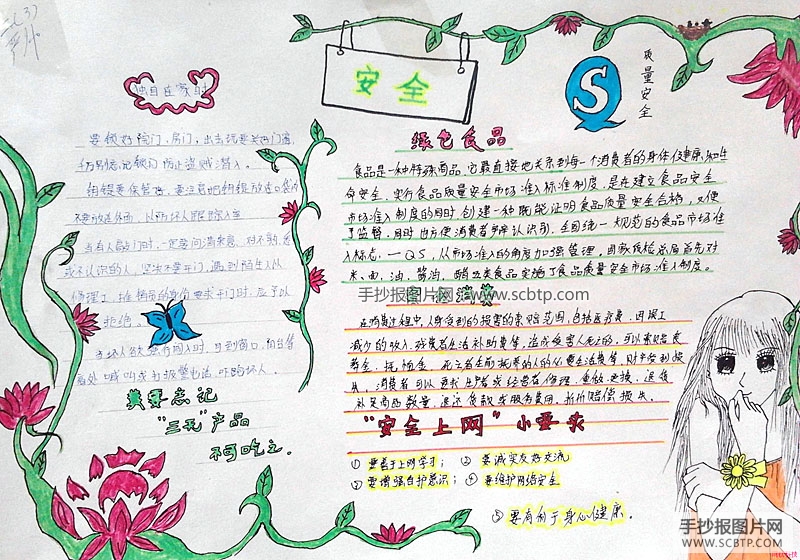 独自在家时
要锁好院门、房门，出去玩要关好门窗，
千万别忘记锁门 防止盗贼潜入。
钥匙要保管好，要注意把钥匙放进口袋内
不要放在外面，以防坏人跟踪入室
当有人敲门时，一定要问清来意，对不熟悉
或不认识的人，坚决不要开门，遇到陌生人以
修理工、推销员的身份要求开门时，应予以
拒绝。
当坏人欲强行闯入时，可到窗口、阳台等
高处喊叫或打报警电话，吓跑坏人。
莫要忘记
"三无"产品
不可吃之.
安全
S
质量安全
绿色食品
食品是一种特殊商品，它最直接地关系到每一个消费者的身体健康和生
命安全。实行食品质量安全市场准入标志制度，是在建立食品安全
市场准入制度的同时，创建一种既能证明食品质量安全合格，又便
于监督，同时也方便消费者辨认识别，全国统一规范的食品市场准
入标志，一QS，从市场准入的角度加强管理。国家质检总局首先对
米、面、油、酱油、醋五类食品实施了食品质量安全市场准入制度。
手抄报图片网 www.scbtp.com
消费
在消费过程中，人身受到的损害的索赔范围，包括医疗费、因误工
减少的收入、残废者生活补助费等，造成受害人死亡的，可以索赔丧
葬金、抚恤金、死亡者生前抚养的人的必要生活费等，财产受到损
失，消费者可以要求生产者或经营者修理、重做、更换、退货
补足商品数量、退还货款或服务费用、折价赔偿损失。
"安全上网"小要求
① 要善于上网学习； ② 要诚实友好交流
③ 要增强自护意识； ④ 要维护网络安全
⑤ 要有利于身心健康.
手抄报图片网
WWW.SCBTP.COM